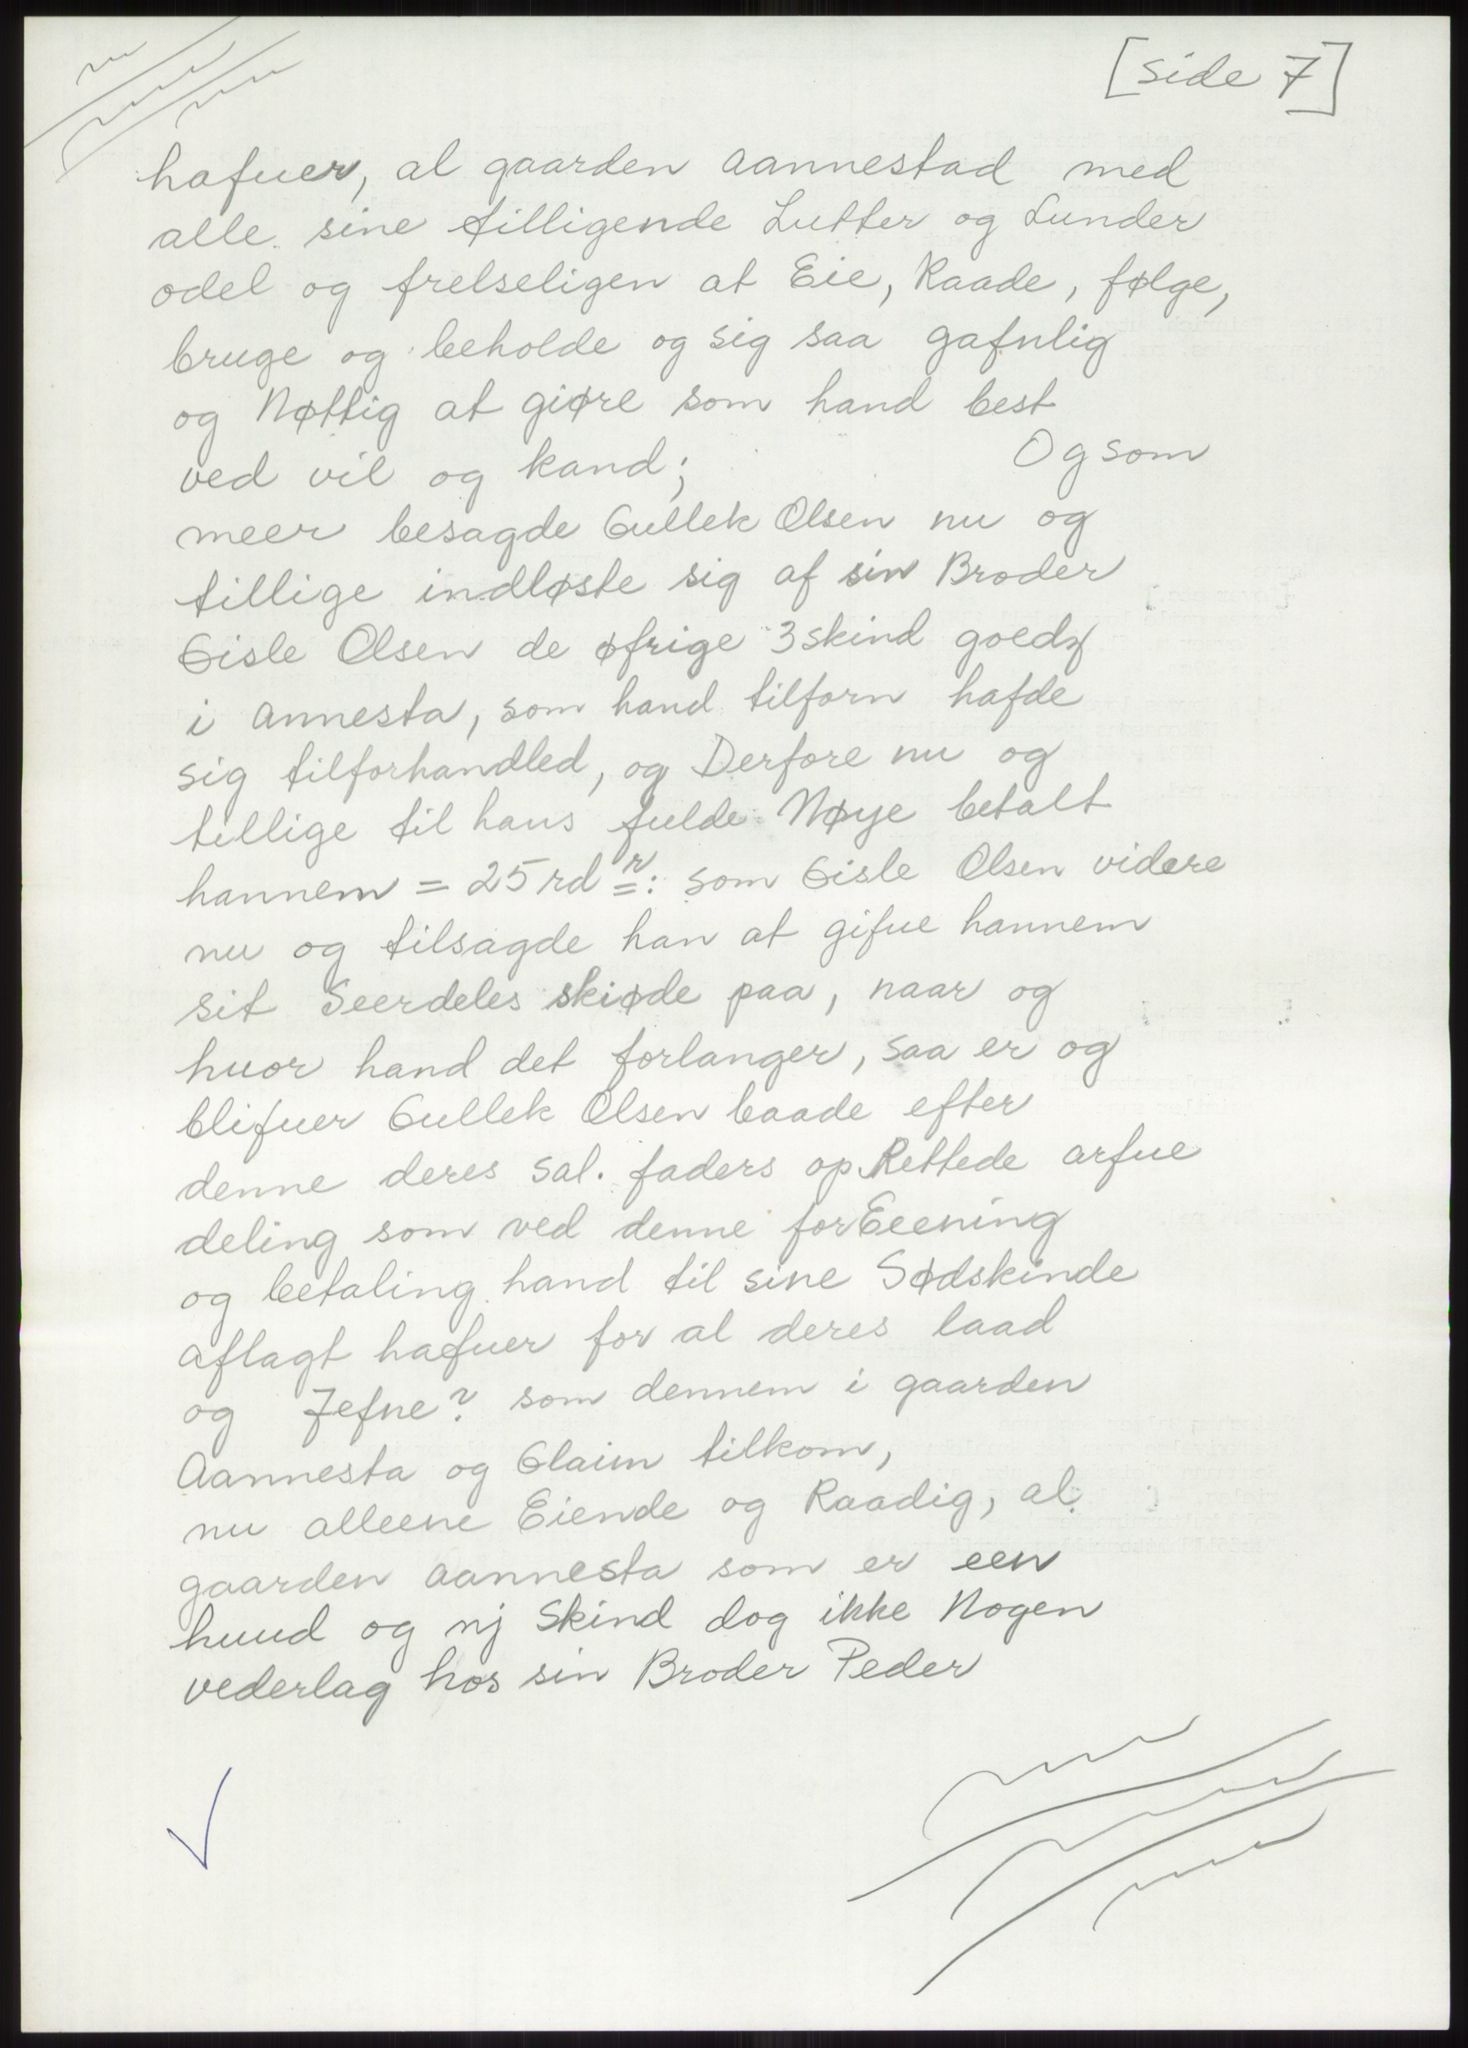 [side 7]
hafuer, al gaarden aannestad med
alle sine tilligende Lutter og Lunder
odel og frelseligen at Eie, Raade, følge,
bruge og beholde og sig saa gafnlig
og Nøttig at giøre som hand best
ved vil og kand; Og som
meer besagde Gullek Olsen nu og
tillige indløste sig af sin Broder
Gisle Olsen de øfrige 3 skind goeds
i annesta, som hand tilforn hafde
sig tilforhandled, og Derfore nu og
tillige til hans fulde Nøye betalt
hannem = 25 rd r: som Gisle Olsen videre
nu og tilsagde han at gifue hannem
sit Seerdeles skiøde paa, naar og
huor hand det forlanger, saa er og
blifuer Gullek Olsen baade efter
denne deres sal. faders op Rettede arfue
deling som ved denne forEeening
og betaling hand til sine Sødskinde
aflagt hafuer for al deres laad
og Jefne? som dennem i gaarden
Aannesta og Glaim tilkom,
nu alleene Eiende og Raadig, al
gaarden aannesta som er een
huud og nj Skind dog ikke Nogen
vederlag hos sin Broder Peder